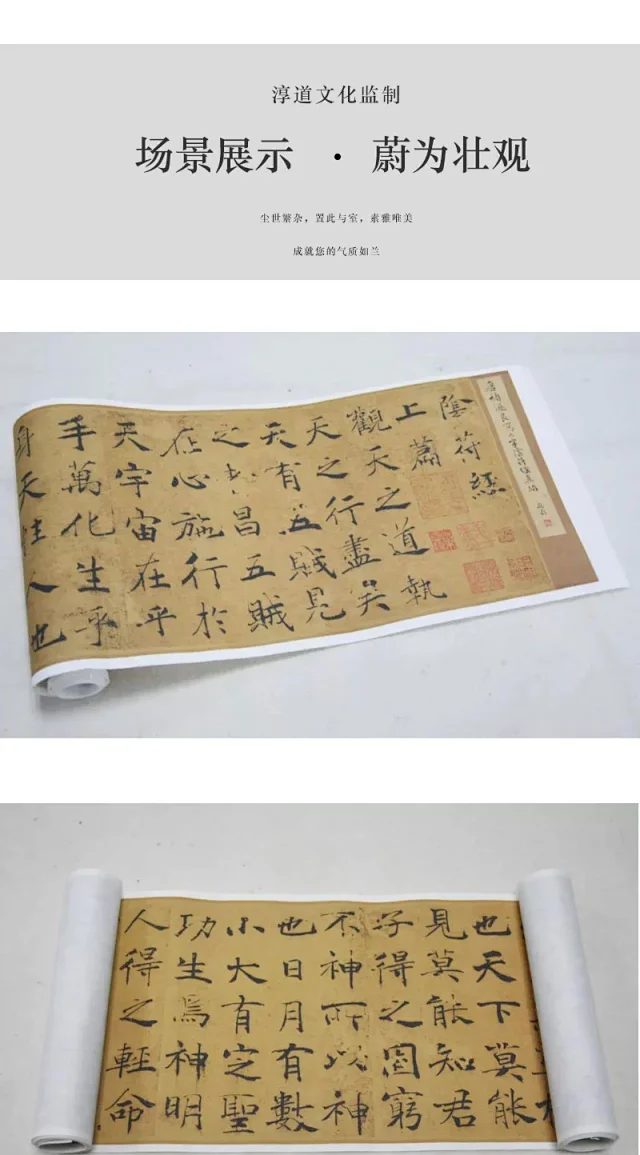 淳道文化监制
场景展示 · 蔚为壮观
尘世繁杂，置此与室，素雅唯美
成就您的气质如兰
陰符經
上篇
觀天之道執
天之行盡矣
天有五賊見
之者昌五賊
在心施行於
天宇宙在乎
手萬化生乎
身天性人也
也天下莫能
見莫能知君
子得之固窮
不神所以神
也日月有數
小大有定聖
功生焉神明
人得之輕命